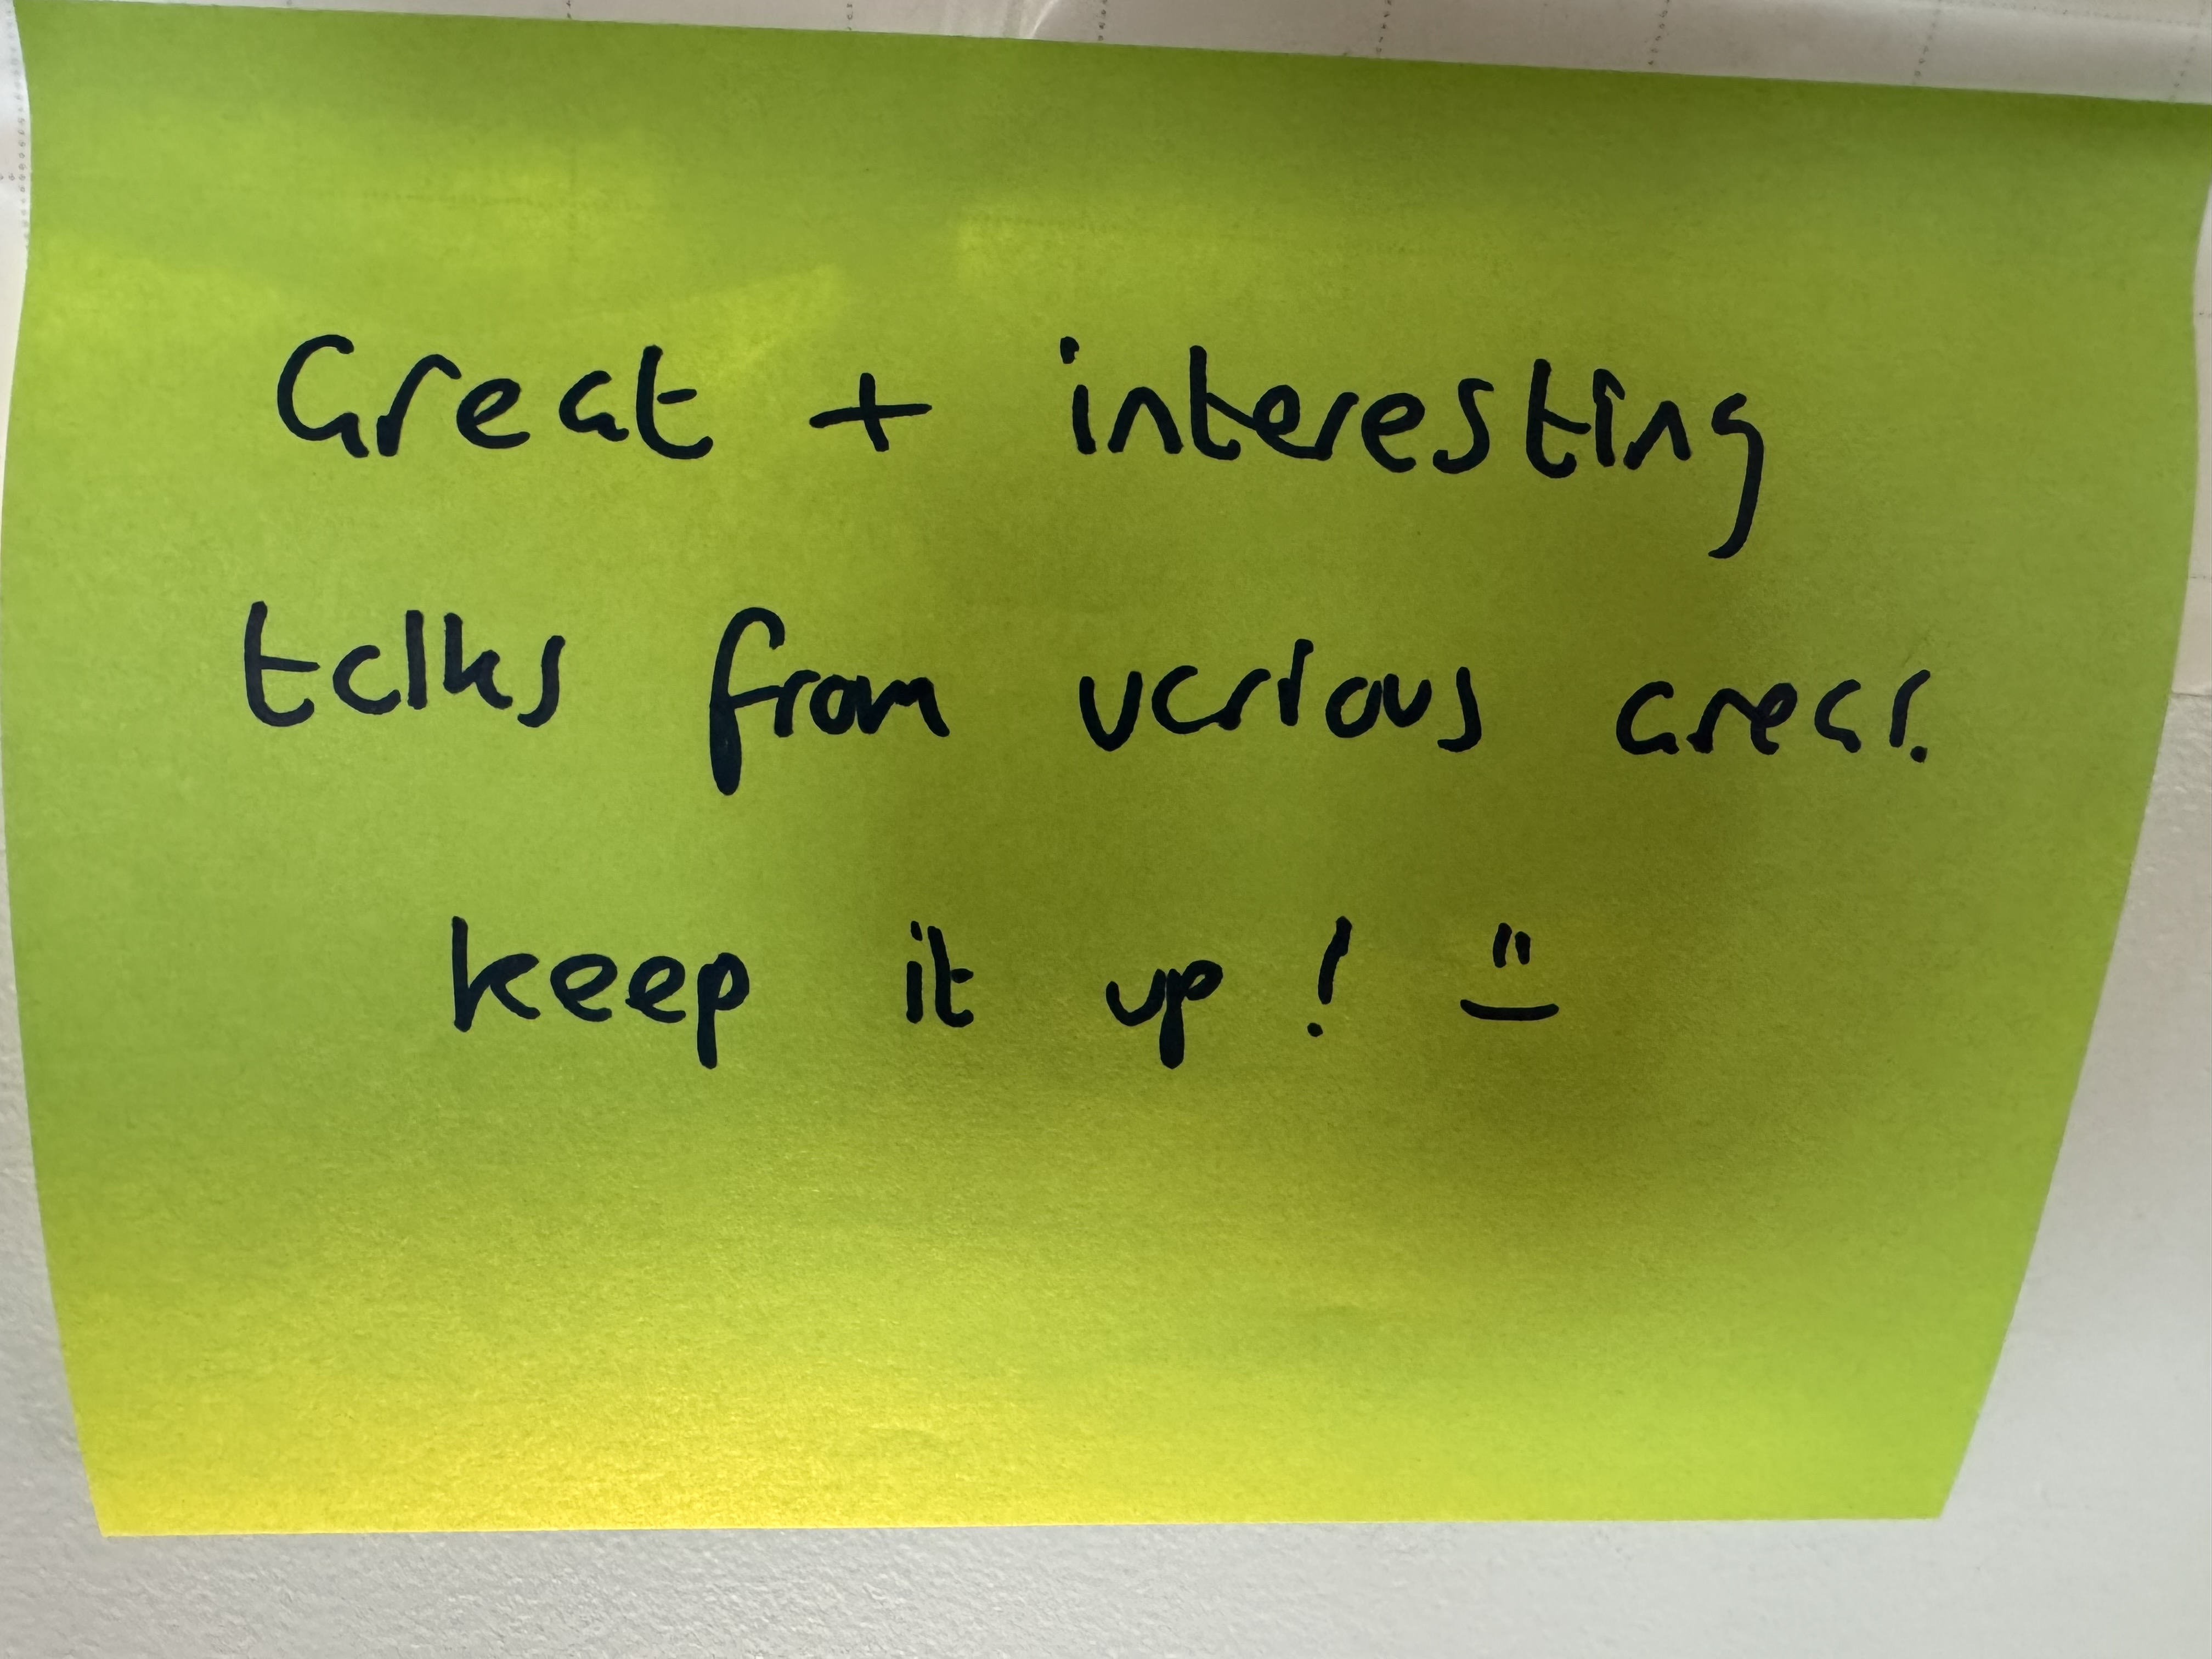 Great + interesting
talks from various areas.
keep it up! :)